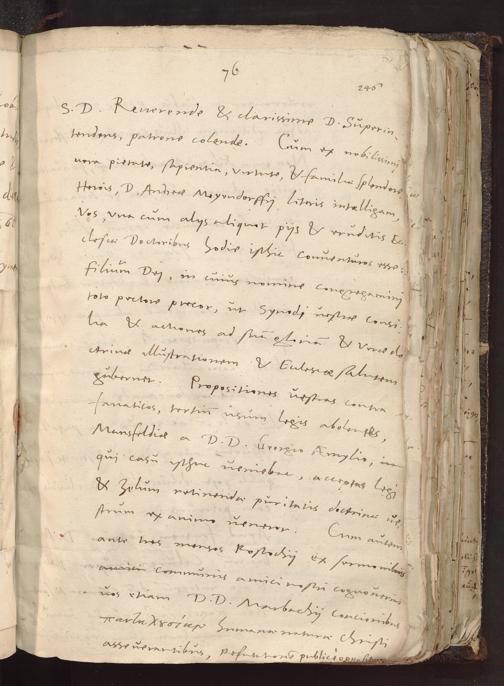 76
246
S. D. Reuerende & clarissime D. Superin-
tendens, patrone colende. Cum ex nobilissimi
uera pietate, sapientia, uirtute, & familiae splendore
Herois, D. Andreae Meyendorffij literis intelligam,
Vos, una cum alijs aliquot pijs & eruditis Ec-
clesiae Doctoribus hodie isthic conuenturos esse:
filium Dei, in cuius nomine congregamini
toto pectore precor, ut Synodi uestrae consi-
lia & actiones ad suam gloriam & uerae do
ctrinae illustrationem & Ecclesiae salutem
gubernet. Propositiones uestras contra
fanaticos, tertium usum legis abolentes,
Mansfeldiae a D. D. Georgio Aemylio, in
qui casu isthuc ueniebam, acceptas legi
& Zelum retinendae puritatis doctrinae ue
strum ex animo ueneror. Cum autem
ante tres menses Rostochij ex sermonibus
communis amici nostri cognouerim
uos etiam D. D. Marbachij concionibus
humanae naturae Christi
asseuerantibus, refutationem publice